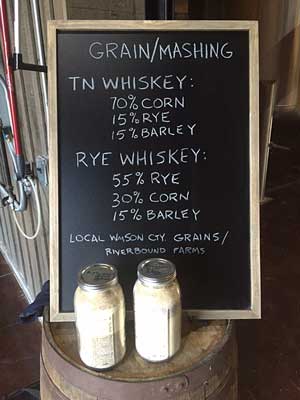 GRAIN/MASHING
TN WHISKEY:
70% CORN
15% RYE
15% BARLEY
RYE WHISKEY:
55% RYE
30% CORN
15% BARLEY
LOCAL WILSON CTY. GRAINS/
RIVERBOUND FARMS